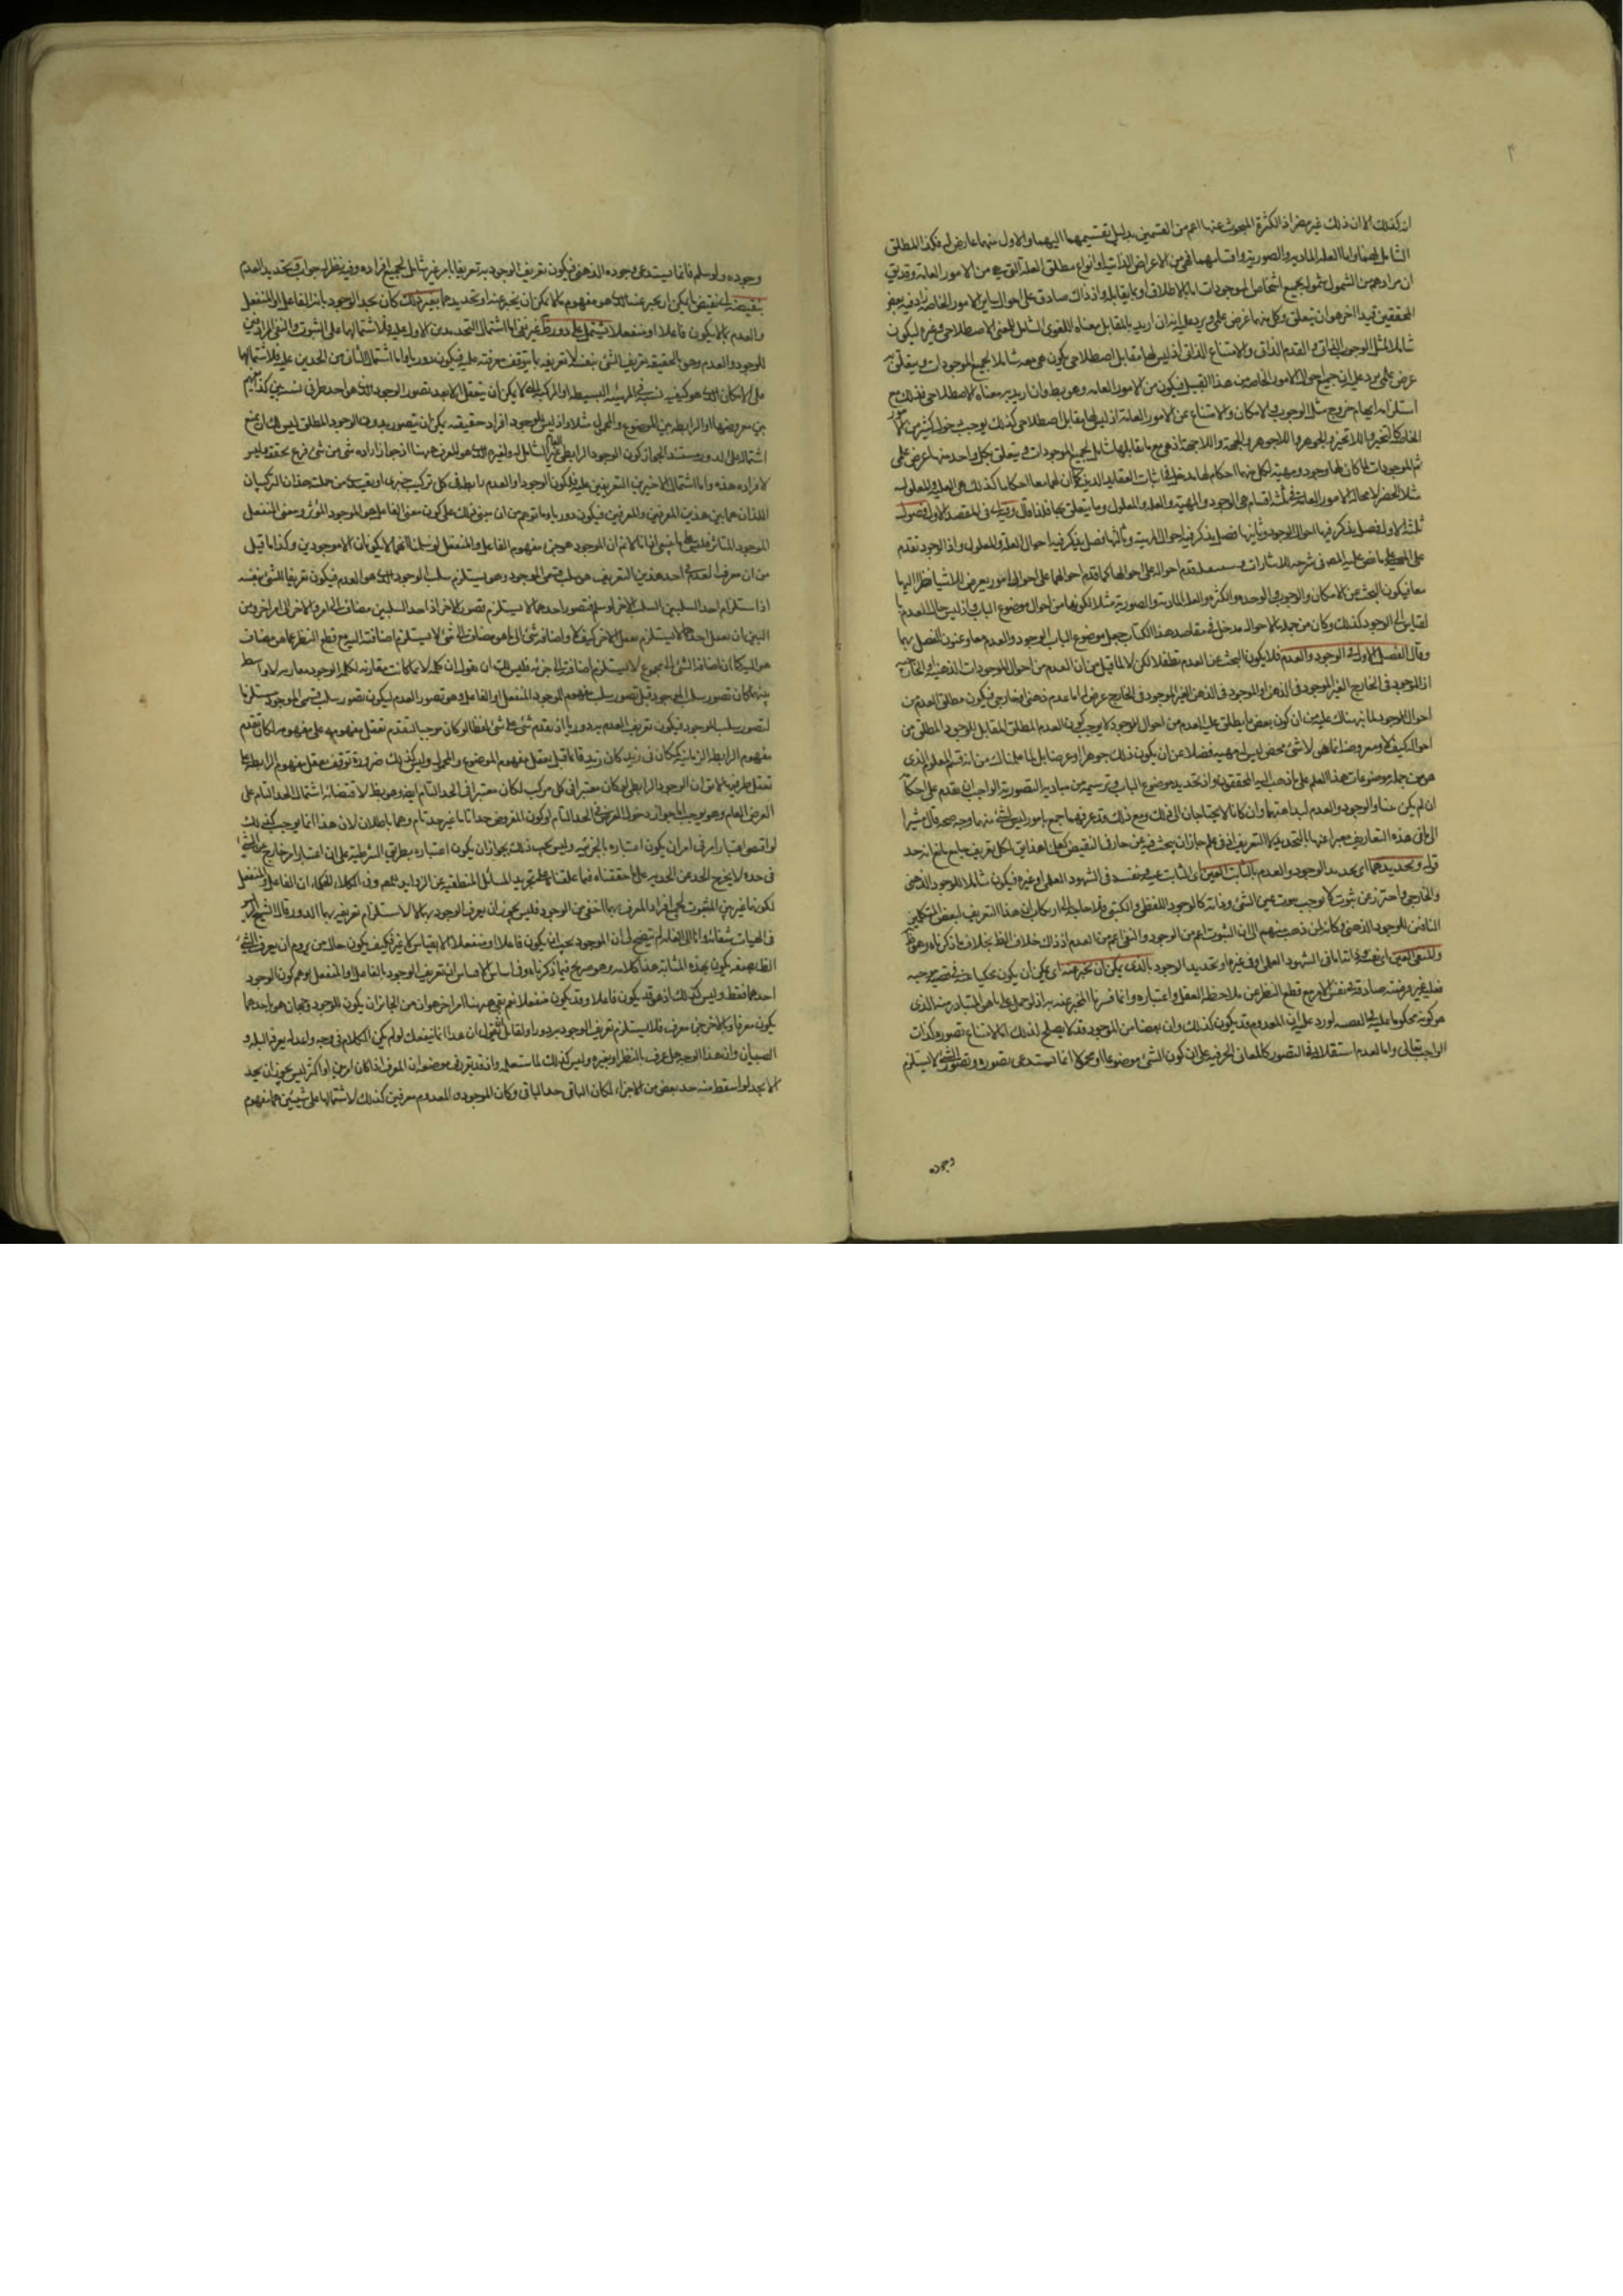 ان كذلك الا ان ذلك غير مضر اذ الكثرة المبحوث عنها اعم من القسمين بدليل تقسيمهما اليهما والاول منهما عارض له فكذا المطلق
الشامل لهما واما العلة المادية والصورية واقسامهما فهى من الاعراض الذاتية لانواع مطلق العلة التى هى من الامور العامة وقد يقى
ان مرادهم من الشمول شمول جميع اشخاص الموجودات اما بالاطلاق او بما يقابله واذ ذاك صادق على احوال ساير الامور الخاصة زاد فيه بعض
المحققين قيدا اخر هو ان يتعلق بكل منهما غرض علمى ويرد عليه انه ان اريد بالمقابل معناه اللغوى الشامل للمعنى الاصطلاحى وغيره ليكون
شاملا لمثل الوجوب الذاتى والقدم الذاتى والامتناع الذاتى اذ ليس لها مقابل اصطلاحى يكون هى معه شاملا لجميع الموجودات ويتعلق به
غرض علمى يرد عليه ان جميع احوال الامور الخاصة من هذا القبيل فيكون من الامور العامة وهو بط وان اريد به معناه الاصطلاحى فذلك مع
استلزامه ايهام خروج مثل الوجوب والامكان والامتناع عن الامور العامة اذ ليس لها مقابل اصطلاحى كذلك يوجب دخول كثير من الامور
الخاصة كالتحيز واللاتحيز والجوهر واللاجوهر والجهة واللاجهة اذ هى مع ما يقابلها شامل لجميع الموجودات ويتعلق بكل واحد منهما غرض علمى
ثم الموجودات لما كان لها وجود ومهية لكل منهما احكام لها مدخل فى اثبات العقايد الدينية كما ان لهما معا احكاما كذلك هى العلية والمعلولية
مثلا انحصر لا محالة الامور العامة فى ثلثة اقسام هى الوجود والمهية والعلة والمعلول وما يتعلق بها فلذا قال وفيه اى فى المقصد الاول فصول
ثلثة الاول فصل يذكر فيها احوال الوجود وثانيها فصل يذكر فيه احوال المهية وثالثها فصل يذكر فيه احوال العلة والمعلول واذ الوجود تقدم
على المهية على ما نص عليه المص فى شرحه للاشارات قدم احواله على احوالها كما قدم احوالهما على احوال امور يعرض للاشيا نظرا اليها
معا فيكون البحث عن الامكان والوجوب والوحدة والكثرة والعلة المادية والصورية مثلا لكونها من احوال موضوع الباب واذ ليس حال للعدم با
لقياس الى الوجود كذلك وكان من جملة ما لاحواله مدخل فى مقاصد هذا الكتاب جعل موضوع الباب الوجود والعدم معا وعنون الفصل بهما
وقال الفصل الاول فى الوجود والعدم فلا يكون البحث عن العدم تطفلا لكن لا لما قيل من ان العدم من احوال الموجودات الذهنية او الخارجية
اذ الموجود فى الخارج الغير الموجود فى الذهن او الموجود فى الذهن الغير الموجود فى الخارج عرض له اما عدم ذهنى او خارجى فيكون مطلق العدم من
احوال الموجود لما نبهناك عليه من ان كون بعض ما يطلق عليه العدم من احوال الموجود لا يوجب كون العدم المطلق المقابل للوجود المطلق من
احواله كيف لا ومعروضه انما هى لا شئ محض ليس له مهية فضلا عن ان يكون ذلك جوهرا او عرضا بل لما علمناك من انه قسم المعلوم الذى
هو من جملة موضوعات هذا العلم على ما ذهب اليه المحققون واذ تحديد موضوع الباب وترسيمه من مباديه التصورية الواجب ان يقدم على احكامه
ان لم يكن بينا والوجود والعدم لبداهتهما وان كانا لا يحتاجان الى ذلك ومع ذلك قد عرفهما جمع بامور ليس لشئ منهما وجه صحة قال مشيرا
الى ما فى هذه التعاريف معبرا عنها بالتحديد كما التعريف اذ فى علم جاز ان يبحث فيه عن حازف النقيض كعلمنا هذا يق لكل تعريف جامع مانع انه حد
قوله وتحديدهما اى تحديد الوجود والعدم بالثابت العين اى الثابت عينه ونفسه فى الشهود العلمى او غيره فيكون شاملا للوجود الذهنى
والخارجى واحترز عن ثبوت لا يوجب ثبوت عين الشئ وذاته كالوجود اللفظى والكتبى فلا حاجة الى ارتكاب ان هذا التعريف لبعض المتكلمين
النافين للوجود الذهنى وكانه لمن ذهب منهم الى ان الثبوت اعم من الوجود والنفى اعم من العدم اذ ذاك خلاف الظ بخلاف ما ذكرناه وهو ظ
والمنفى العين اى نفسه وذاته اما فى الشهود العلمى او فى غيره او تحديد الوجود بالذى يمكن ان يخبر عنه اى يمكن ان يكون محكيا عنه فى قضية موجبة
فعلية غير فرضية صادقة بنفس الامر مع قطع النظر عن ملاحظة العقل واعتباره وانما فسرنا المخبر عنه به اذ لو حمل على ما هو المتبادر منه الذى
هو كونه محكوما عليه فى القضية لورد عليه ان المعدوم قد يكون كذلك وان بعضا من الموجود قد لا يصلح لذلك اما لامتناع تصوره كذات
الواجب تعالى واما لعدم استقلاله فى التصور كالمعانى الحرفية على ان كون الشئ موضوعا او محمولا انما يستدعى تصوره وتصور الشئ لا يستلزم
وجوده
وجوده ولو سلم فانما يستدعى وجوده الذهنى فيكون تعريف الوجود به تعريفا بامر غير شامل لجميع افراده وفيه نظر له جواب وتحديد العدم
بنقيضه اى بنقيض ما يمكن ان يخبر عنه الذى هو مفهوم ما لا يمكن ان يخبر عنه او تحديدهما بغير ذلك كان يحد الوجود بانه الفاعل او المنفعل
والعدم بما لا يكون فاعلا او منفعلا يشتمل على دور ظ غير خفى اما اشتمال التحديدين الاولين عليه فلاشتمالهما على الثبوت والنفى المرادفين
للوجود والعدم وهو بالحقيقة تعريف الشئ بنفسه لا تعريفه بما يتوقف معرفته عليه فيكون دوريا واما اشتمال الثانى من الحدين عليه فلاشتمالها
على الامكان الذى هو كيفية نسبة فى الهلية البسيطة او المركبة التى لا يمكن ان يتعقل الا بعد تصور الوجود الذى هو احد طرفى نسبتين كذا نعم
بين معروضها او الرابطة بين الموضوع والمحمول مثلا واذ ليس للوجود افراد حقيقية يمكن ان يتصور بدون الوجود المطلق ليس لك ان تمنع
اشتماله على الدور مستندا بجواز كون الوجود الرابطى غير العام الشامل له ولغيره الذى هو المعرف ههنا اذ جاز اراده شى من شى فرع تحققه وليس
لافراده هذه واما اشتمال الاخيرين التعريفين عليه فلكون الوجود او العدم ما بطرف كل تركيب خبرى او تقييدى من جملته هذان التركيبان
اللذان هما بين هذين المعرفين والمعرفين فيكون دوريا وما توهم من ان مبنى ذلك على كون معنى الفاعل هو الموجود المؤثر ومعنى المنفعل
الموجود المتاثر فليس على ما ينبغى فانا لا نم ان الموجود هو جزء مفهوم الفاعل والمنفعل لو سلمنا انهما لا يكونان الا موجودين وكذا ما قيل
من ان معرف العدم فى احد هذين التعريف هو سلب قسمى الوجود وهو يستلزم سلب الوجود الذى هو العدم فيكون تعريفا للشئ بنفسه
اذا استلزام احد السلبين السلب الاخر لو سلم فتصور احدهما لا يستلزم تصور الاخر اذ احد السلبين مضاف الى امر والاخر الى امر اخر ومن
البين ان تعقل احدهما لا يستلزم تعقل الاخر كيف لا واضافة شئ الى ما هو مضاف الى شئ لا يستلزم اضافته اليه مع قطع النظر عما هو مضاف
هو اليه كما ان اضافة الشئ الى مجموع لا يستلزم اضافته الى جزئه فليس لك ان تقول ان كلمة لا لما كانت مقارنة لكلمة الوجود معا ربه بلا واسط
بينهما كان تصور سلب الوجود قبل تصور سلب مفهوم الوجود المنفعل او الفاعل وهو تصور العدم ليكون تصور سلب قسمى الموجود مستلزما
لتصور سلب الوجود فيكون تعريف العدم به دوريا اذ تقدم شئ على شئ لفظا لو كان موجبا لتقدم تعقل مفهومه على مفهومه لكان تقدم
مفهوم الرابطة الزمانية كما كان فى زيد كان زيد قائما قبل تعقل مفهوم الموضوع والمحمول وليس كذلك ضرورة توقف تعقل مفهوم الرابطة على
تعقل طرفيها لا يق ان الوجود الرابطى لو كان معتبرا فى كل مركب لكان معتبرا فى الحد التام ايضا وهو بط لاقتضائه اشتمال الحد التام على
العرض العام وهو يوجب اما جواز دخول العرض فى الحد التام او كون المفروض حدا تاما غير حد تام وهما باطلان لان هذا انما يوجب كذلك
لو اقتضى اعتبار امر فى امر ان يكون اعتباره بالجزئية وليس يجب ذلك بجواز ان يكون اعتباره بطريق الشرطية على ان اعتبار امر خارج عن الشئ
فى حده لا يخرج الحد عن الحدية على ما حققناه فيما علقناه على تجريد المسائل المنطقية من الزوايد نعم وفى الكلام للحكماء ان الفاعل والمنفعل
لكونهما غير بين الثبوت لجميع افراد المعرف بهما اخفى من الوجود فليس يجوز ان يعرف الوجود بهما لا لاستلزام تعريفه بهما الدور قال الشيخ الرئيس
فى الهيات شفائه وانا الى الغاية لم يتضح لى ان الموجود يجب ان يكون فاعلا او منفعلا الا بقياس لا غير فكيف يكون حال من يروم ان يعرف الشئ
الظ بصفة يكون بهذه المثابة هذا كلامه وهو صريح فيما ذكرناه وفى اساس الاساس ان تعريف الوجود بالفاعل او المنفعل يوهم كون الوجود
احدهما فقط وليس كذلك اذ هو قد يكون فاعلا وقد يكون منفعلا نعم بقى ههنا امر اخر هو ان من الجائز ان يكون للوجود وجهان هو باحدهما
يكون معرفا وبالاخر جزء معرف فلا يستلزم تعريف الوجود به دورا ولقائل ان يقول ان هذا انما ينفعك لو لم يكن الكلام فى وجه واحد له يعرفه البله و
الصبيان وان هذا الوجه هل عرف بالنظر او بغيره وليس كذلك لما ستعلم واذ قد تقرر فى موضعه ان المعرف اذا كان امرين او اكثر ليس يجوز ان يحد
الا بحد لو اسقط منه حد بعض من الاجزاء لكان الباقى حد الباقى وكان الموجود والمعدوم معرفين كذلك لاشتمالهما على شيئين هما مفهوم